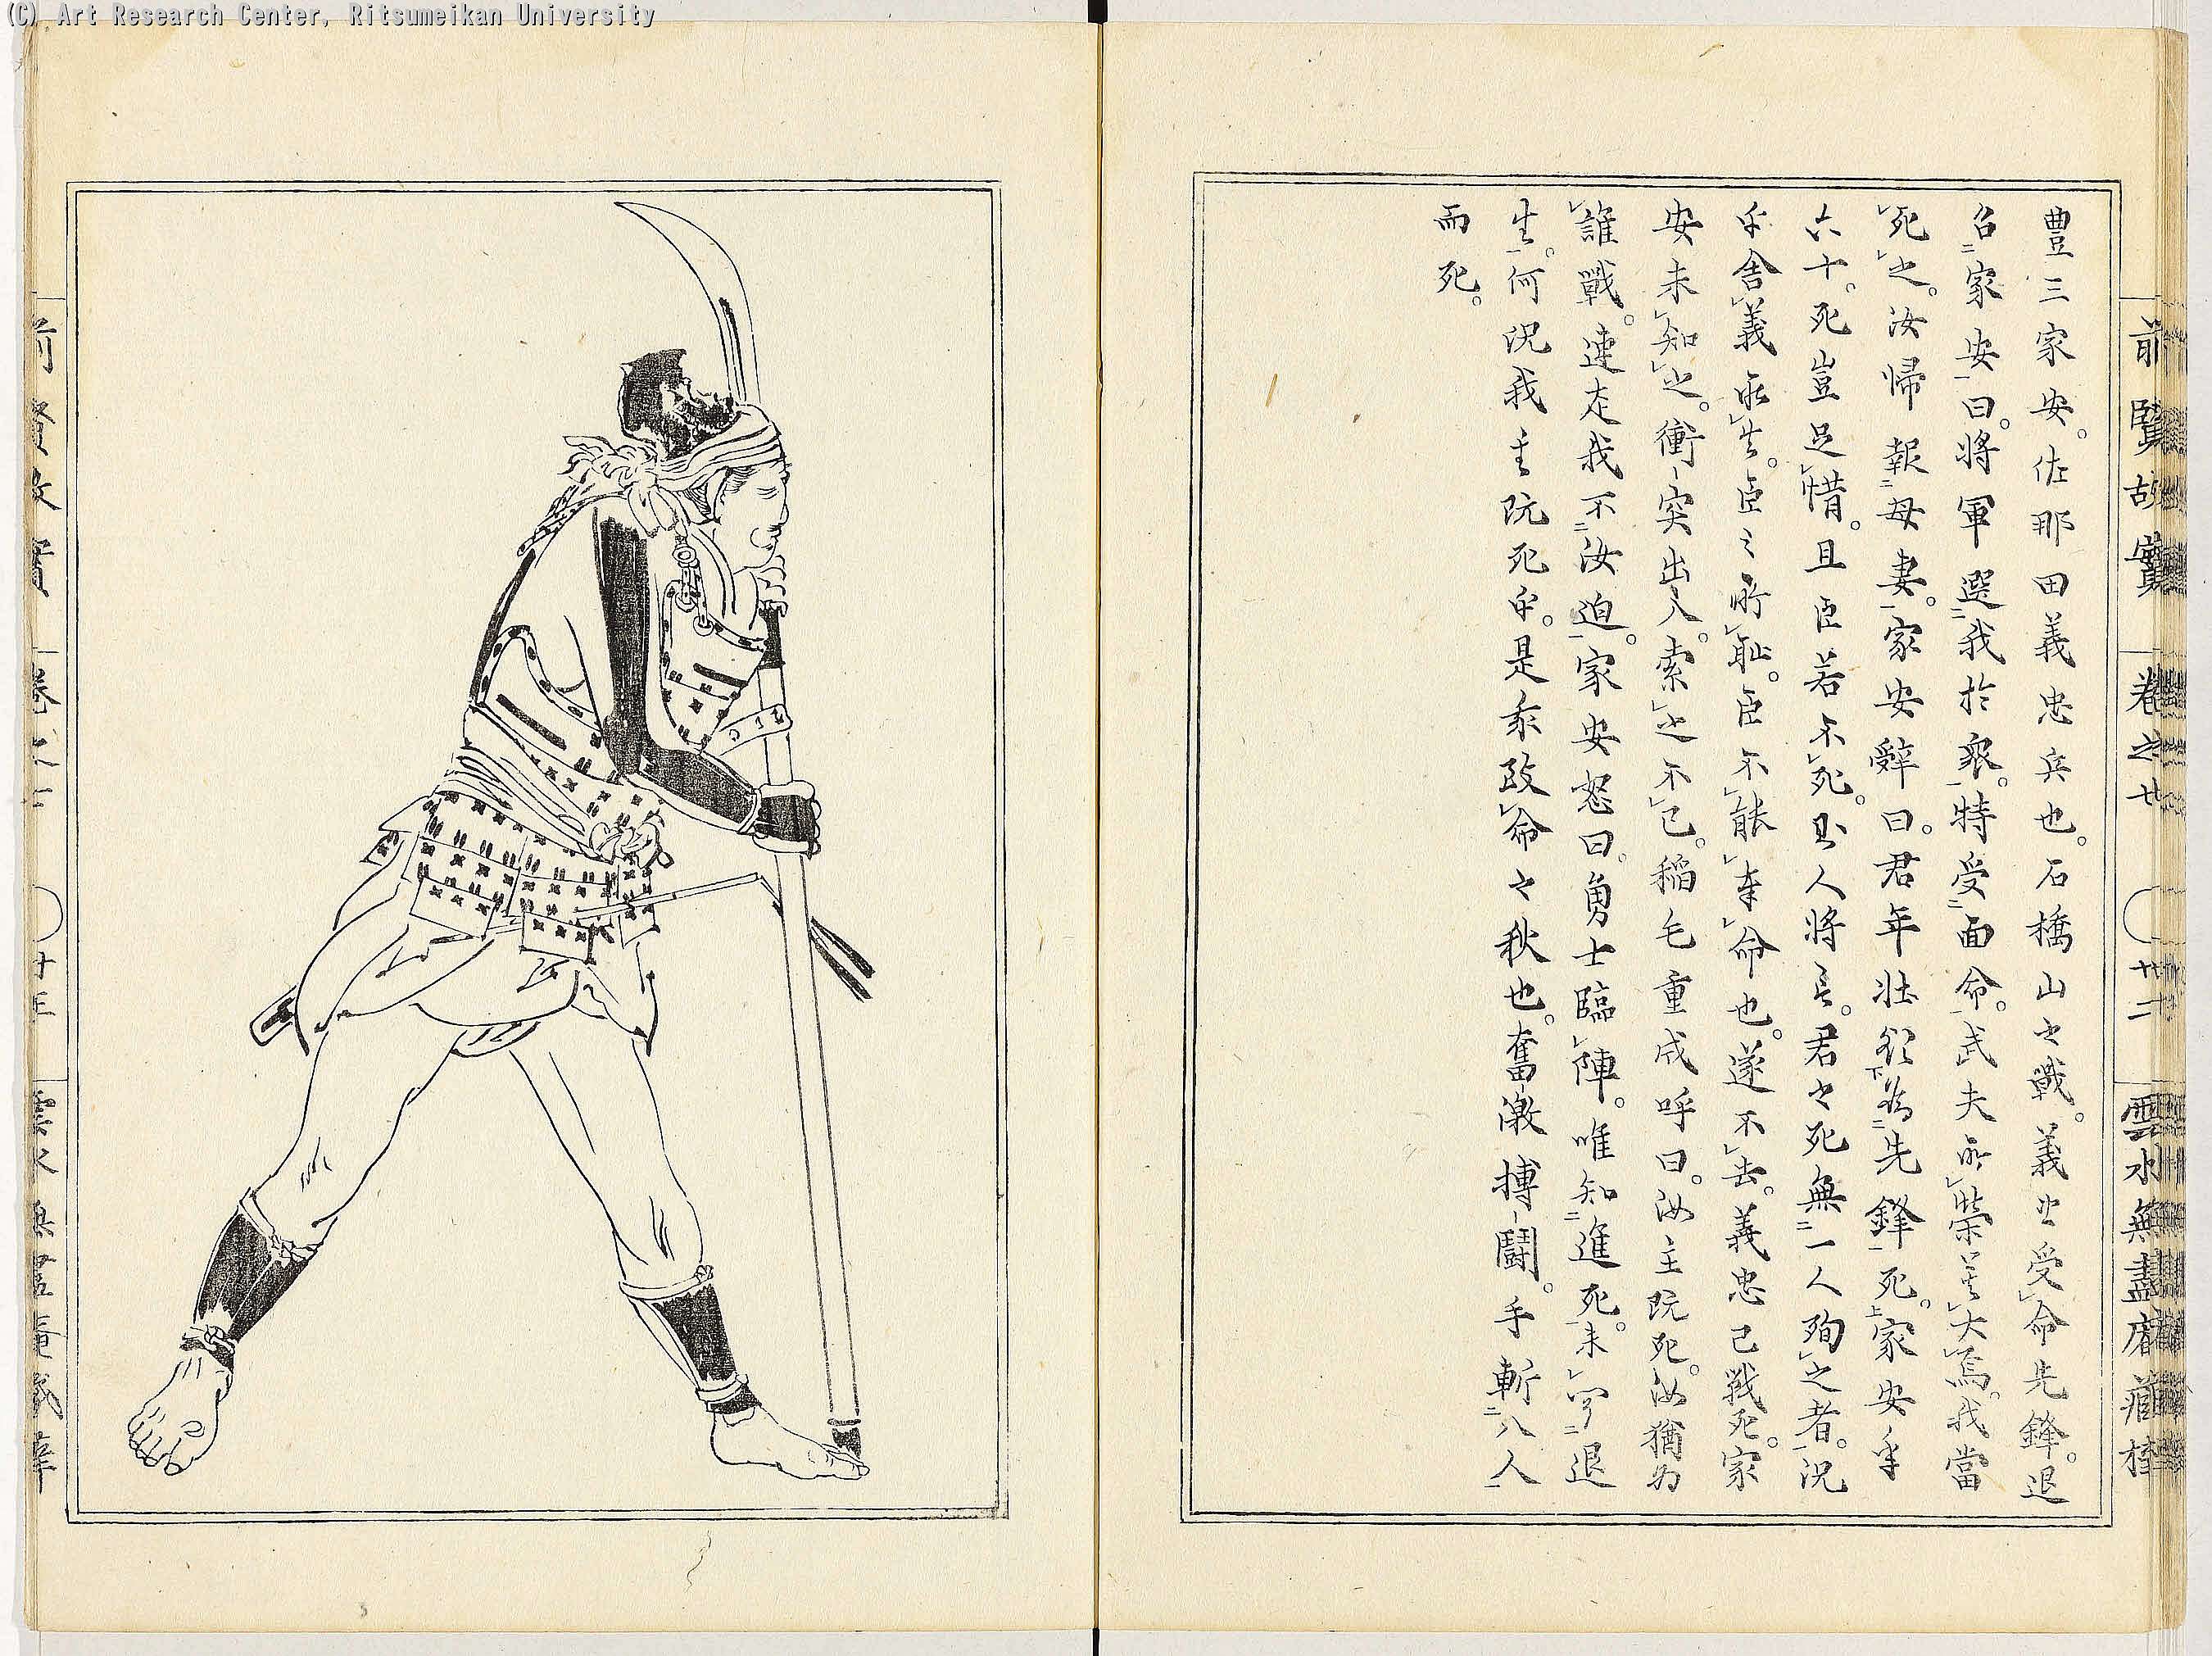 (C) Art Research Center, Ritsumeikan University
前賢故實 卷之廿 廿二 雲水無盡庵藏梓
豊三家安。佐那田義忠兵也。石橋山之戰。義忠受命先鋒。退
召家安曰。將軍選我於衆。特受面命。武夫所榮莫大焉。我當
死之。汝帰報母妻。家安辭曰。君年壯欲爲先鋒死。家安年
六十。死豈足惜。且臣若不死。則人將言。君之死無一人殉之者。況
乎舍義求生。臣之所恥。臣不能奉命也。遂不去。義忠已戰死。家
安未知之。衝突出入。索之不已。稲毛重成呼曰。汝主既死。汝猶爲
誰戰。速走我不汝迫。家安怒曰。勇士臨陣。唯知進死。未聞退
生。何況我主既死乎。是余致命之秋也。奮激搏鬪。手斬八人
而死。
前賢故實 卷之 雲水無盡庵藏梓